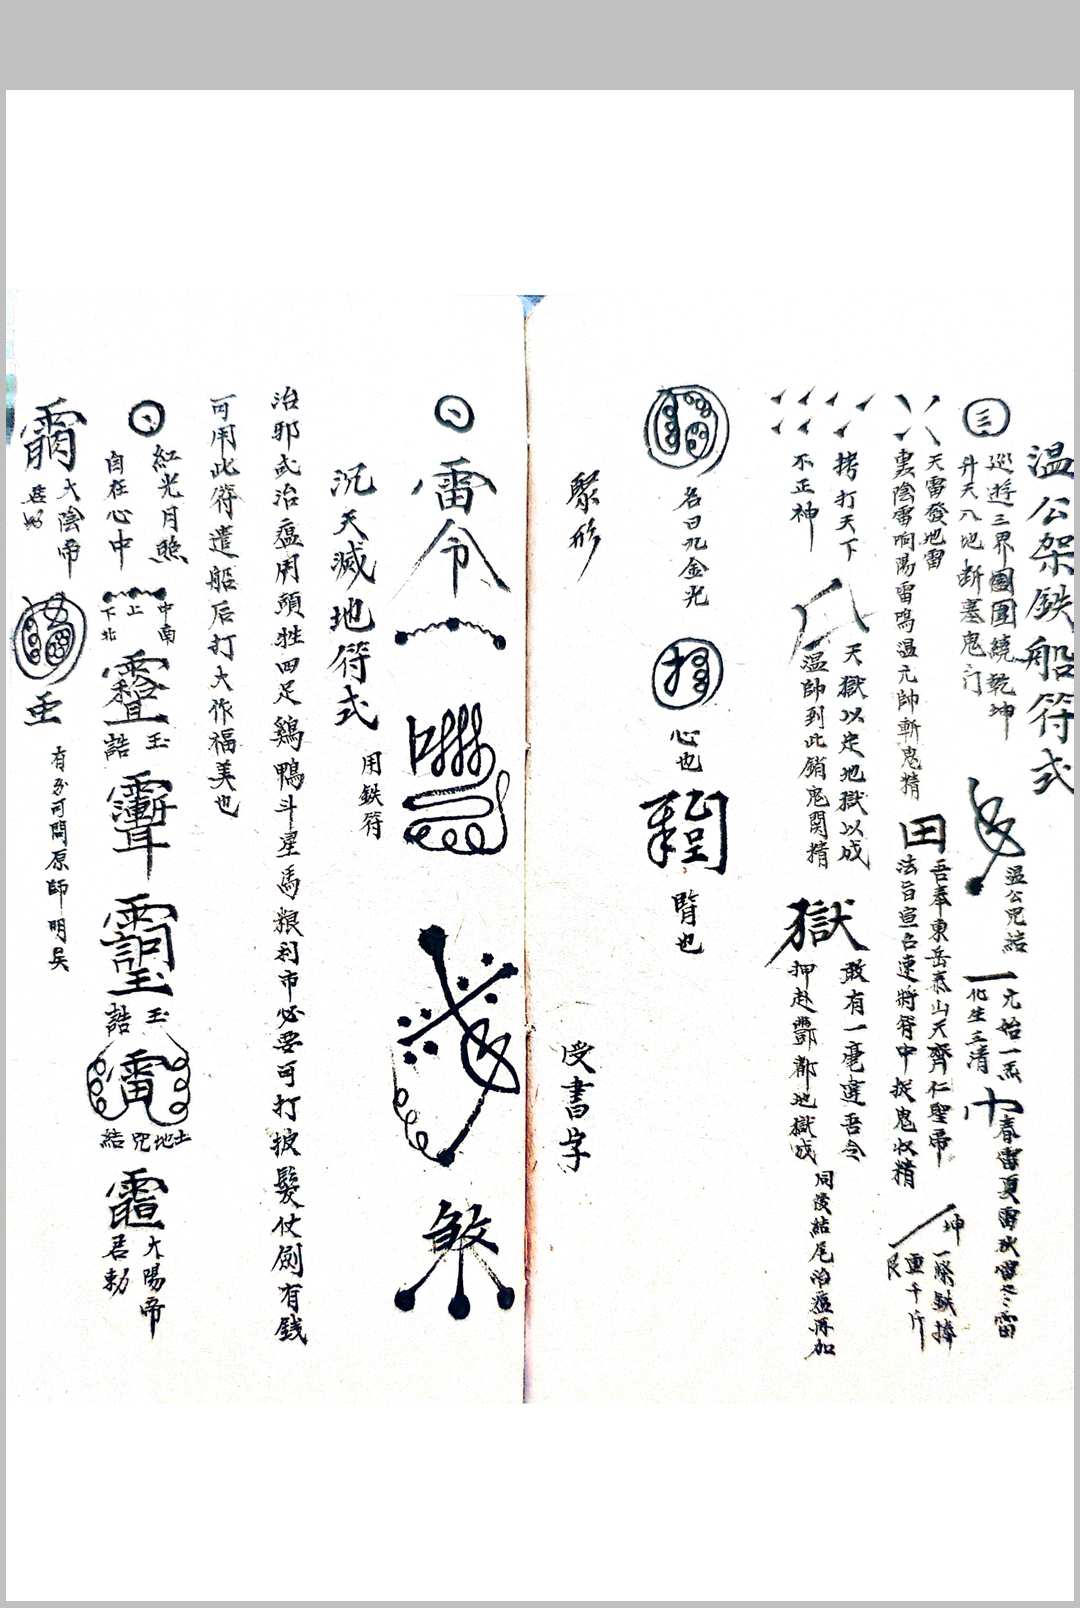 温公架鉄船符式
三
巡遊三界團圓繞乾坤
升天入地断塞鬼门
温公咒结
一
元始一炁
化生三清
巾
春雷夏雷秋雷冬雷
天雷發地雷
雲陰雷响陽雷鳴温元帥斬鬼精
田
吾奉東岳泰山天齊仁聖帝
法旨宣召速將符中捉鬼收精
坤
一条鉄棒
重千斤
艮
拷打天下
不正神
天獄以定地獄以成
温帥到此銷鬼関精
獄
敢有一毫違吾令
押赴酆都地獄成
同後結尾治瘟再加
名曰九金光
心也
腎也
聚形
受書字
雷令
煞
沉天滅地符式
用鉄符
治邪或治瘟用頭牲四足鷄鴨斗星馬粮利市必要可打披髮仗劍有錢
可用此符遣船后打大作福美也
紅光月照
自在心中
中南
上
下北
玉
誥
玉
誥
土地咒結
太陽帝
君勅
太陰帝
有多可問原師明吴